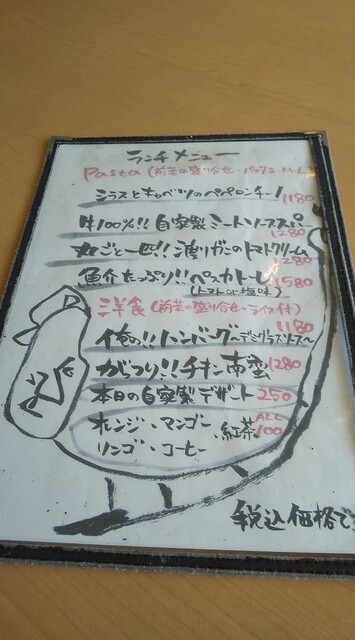 ランチメニュー
Pasta (前菜の盛り合せ
シラスとキャベツのペペロンチーノ 1180
牛100%!! 自家製ミートソース 1280
丸ごと一匹!! 渡りガニのトマトクリーム 1280
魚介たっぷり!! ペスカトーレ 1580
(トマト or 塩味)
洋食 (前菜の盛り合せ・ライス付)
俺の!! ハンバーグ〜デミグラスソース〜 1180
がっつり!! チキン南蛮 1280
本日の自家製デザート 250
オレンジ・マンゴー
リンゴ・コーヒー 紅茶 ALL 100
税込価格で